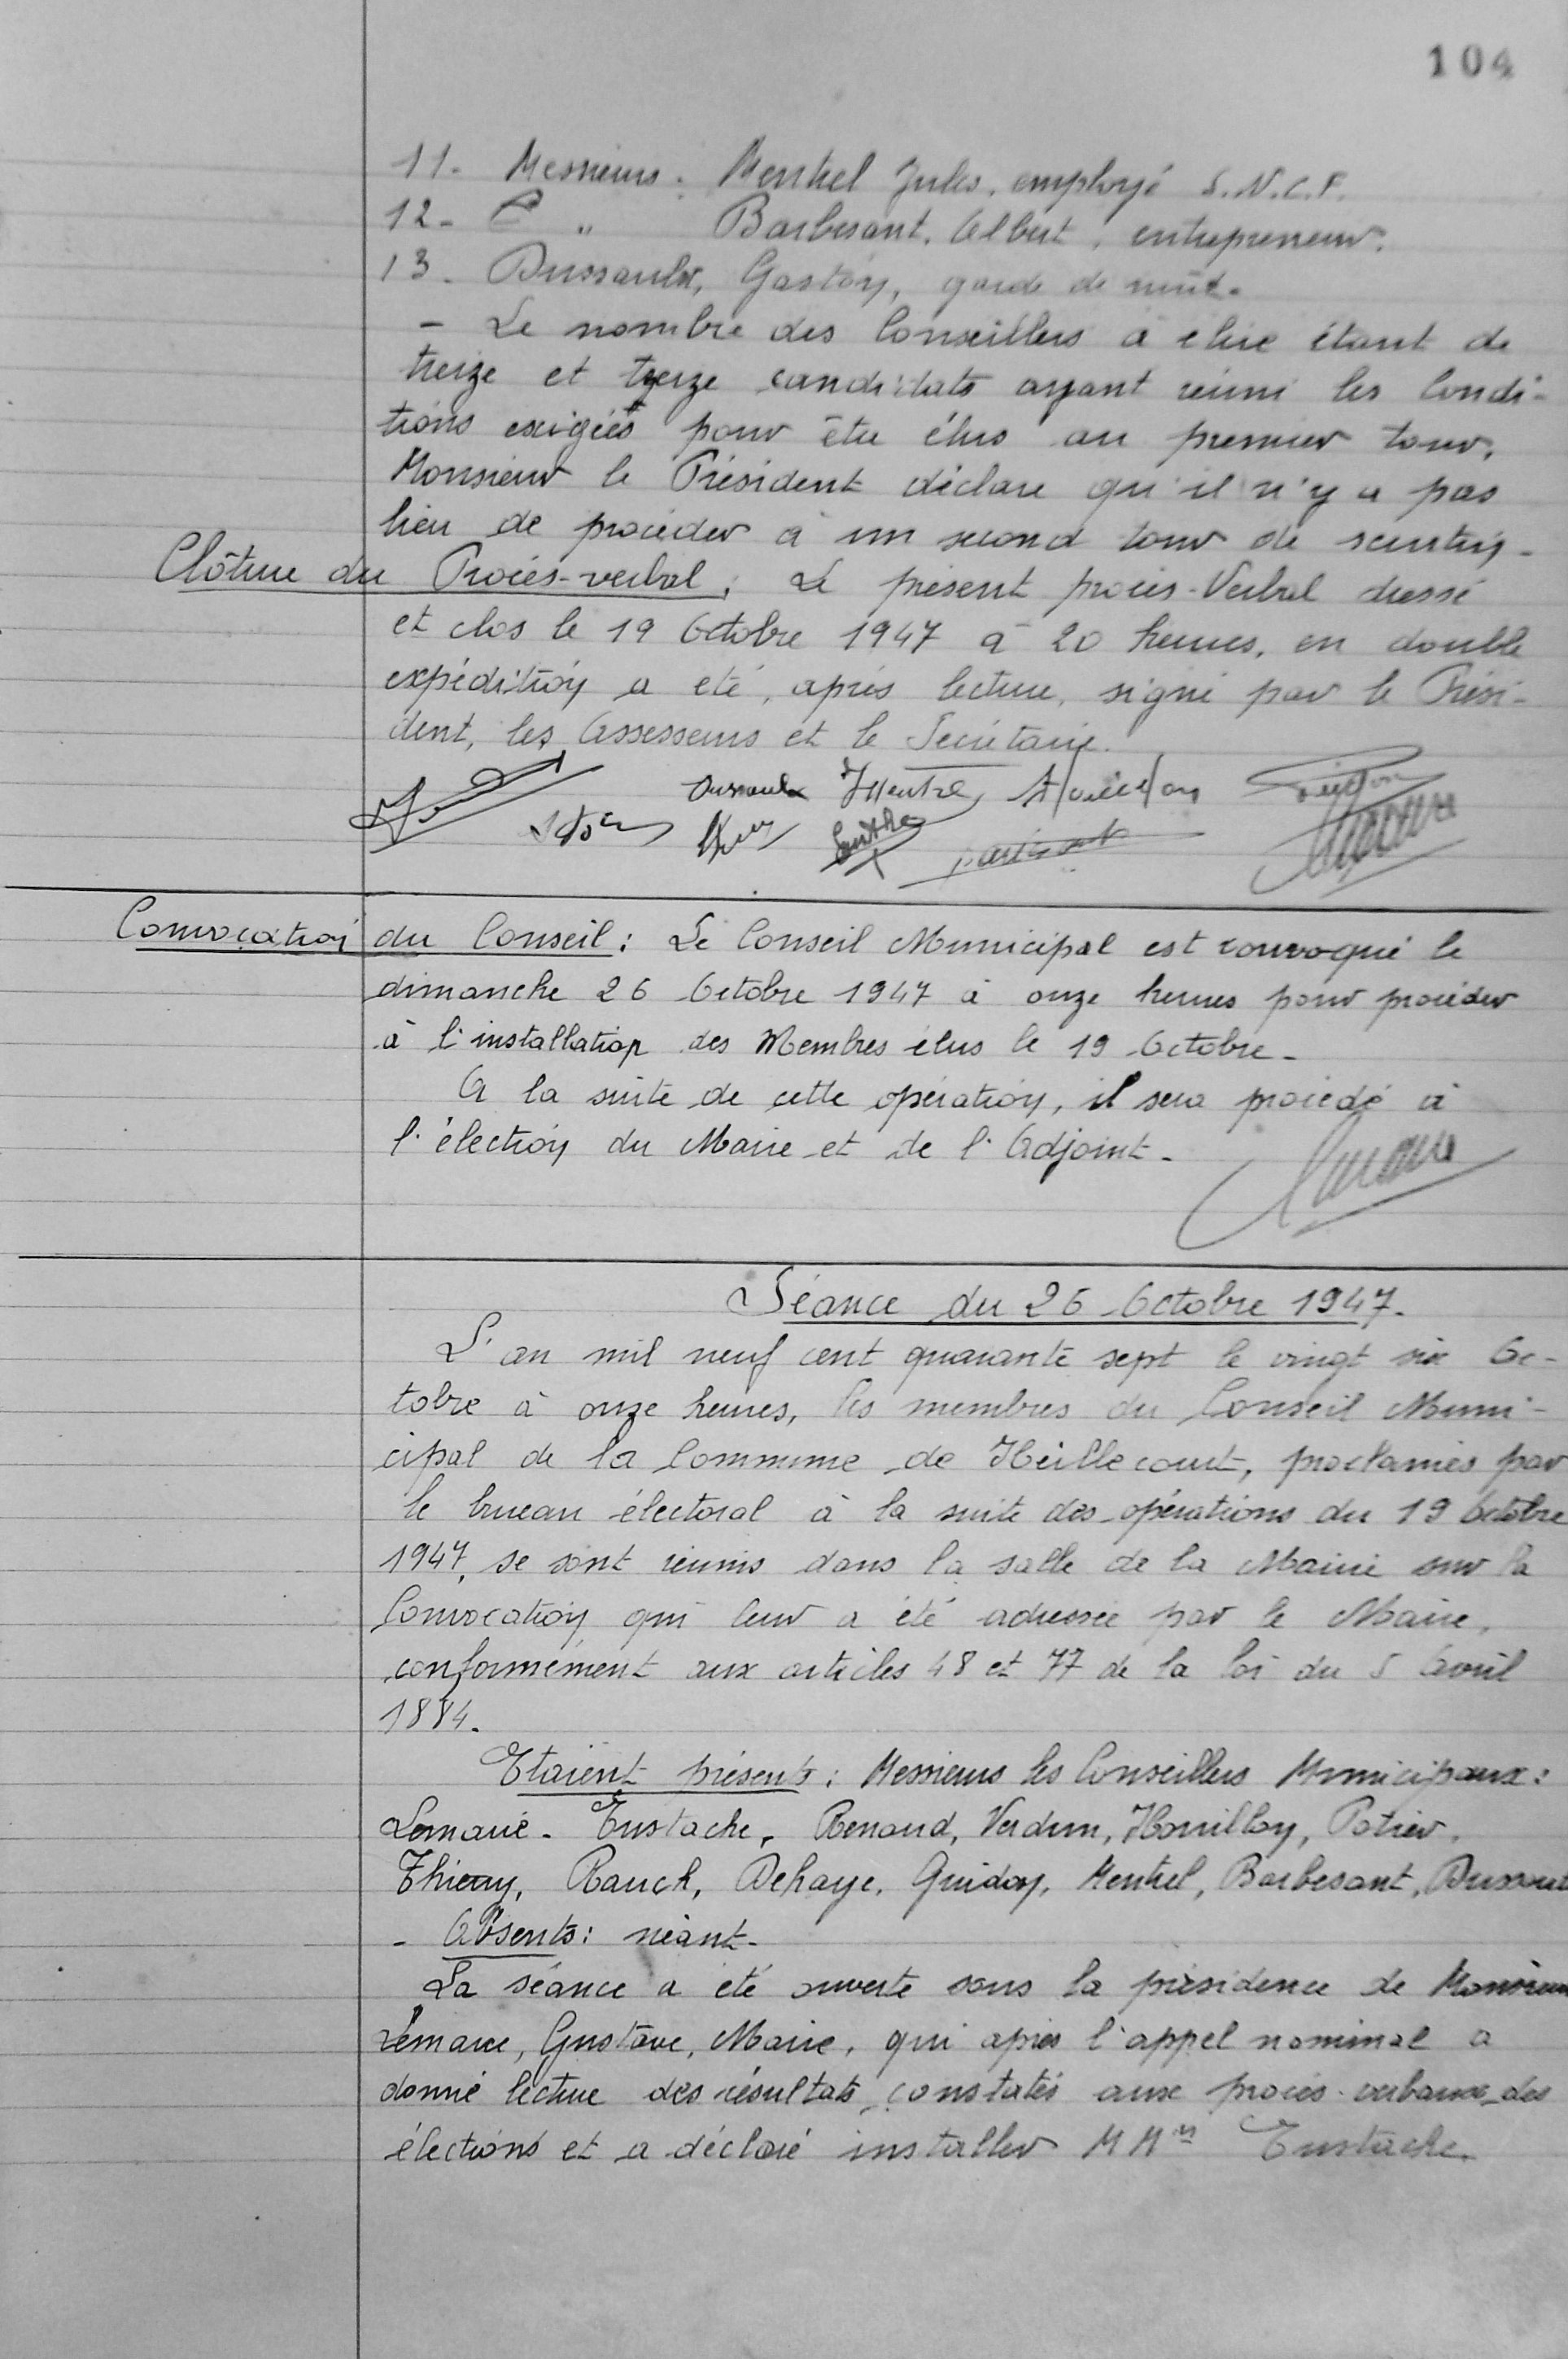 104
11. Messieurs. Menkel Jules, employé S.N.C.F.
12. " Barbesant, Albert, entrepreneur.
13. Dussaulx, Gaston, garde de nuit.
- Le nombre des Conseillers à elire étant de
treize et treize candidats ayant réuni les Condi-
tions exigées pour être élus au premier tour,
Monsieur le Président déclare qu'il n'y a pas
lieu de procéder à un second tour de scrutin-
Clôture du Procès-verbal : Le présent procès-Verbal dressé
et clos le 19 Octobre 1947 à 20 heures, en double
expédition a eté, après lecture, signé par le Prési-
dent, les Assesseurs et le Secrétaire.
Dussaulx
Convocation du Conseil : Le Conseil Municipal est convoqué le
dimanche 26 Octobre 1947 à onze heures pour procéder
à l'installation des Membres élus le 19 Octobre-
A la suite de cette opération, il sera procédé à
l'élection du Maire et de l'Adjoint-
Séance du 26 Octobre 1947.
L'an mil neuf cent quarante sept le vingt six Oc-
tobre à onze heures, les membres du Conseil Muni-
cipal de la Commune de Heillecourt, proclamés par
le bureau électoral à la suite des opérations du 19 Octobre
1947, se sont réunis dans la salle de la Mairie sur la
Convocation qui leur a été adressée par le Maire,
conformément aux articles 48 et 77 de la loi du 5 Avril
1884.
Etaient présents : Messieurs les Conseillers Municipaux :
Lemarié - Eustache, Renaud, Verdun, Houillon, Potier,
Thierry, Rauch, Dehaye, Guidon, Menkel, Barbesant, Dussault
- Absents : néant-
La séance a été ouverte sous la présidence de Monsieur
Lemarié, Gustave, Maire, qui après l'appel nominal a
donné lecture des résultats constatés aux procès-verbaux des
élections et a déclaré installer MMrs Eustache,